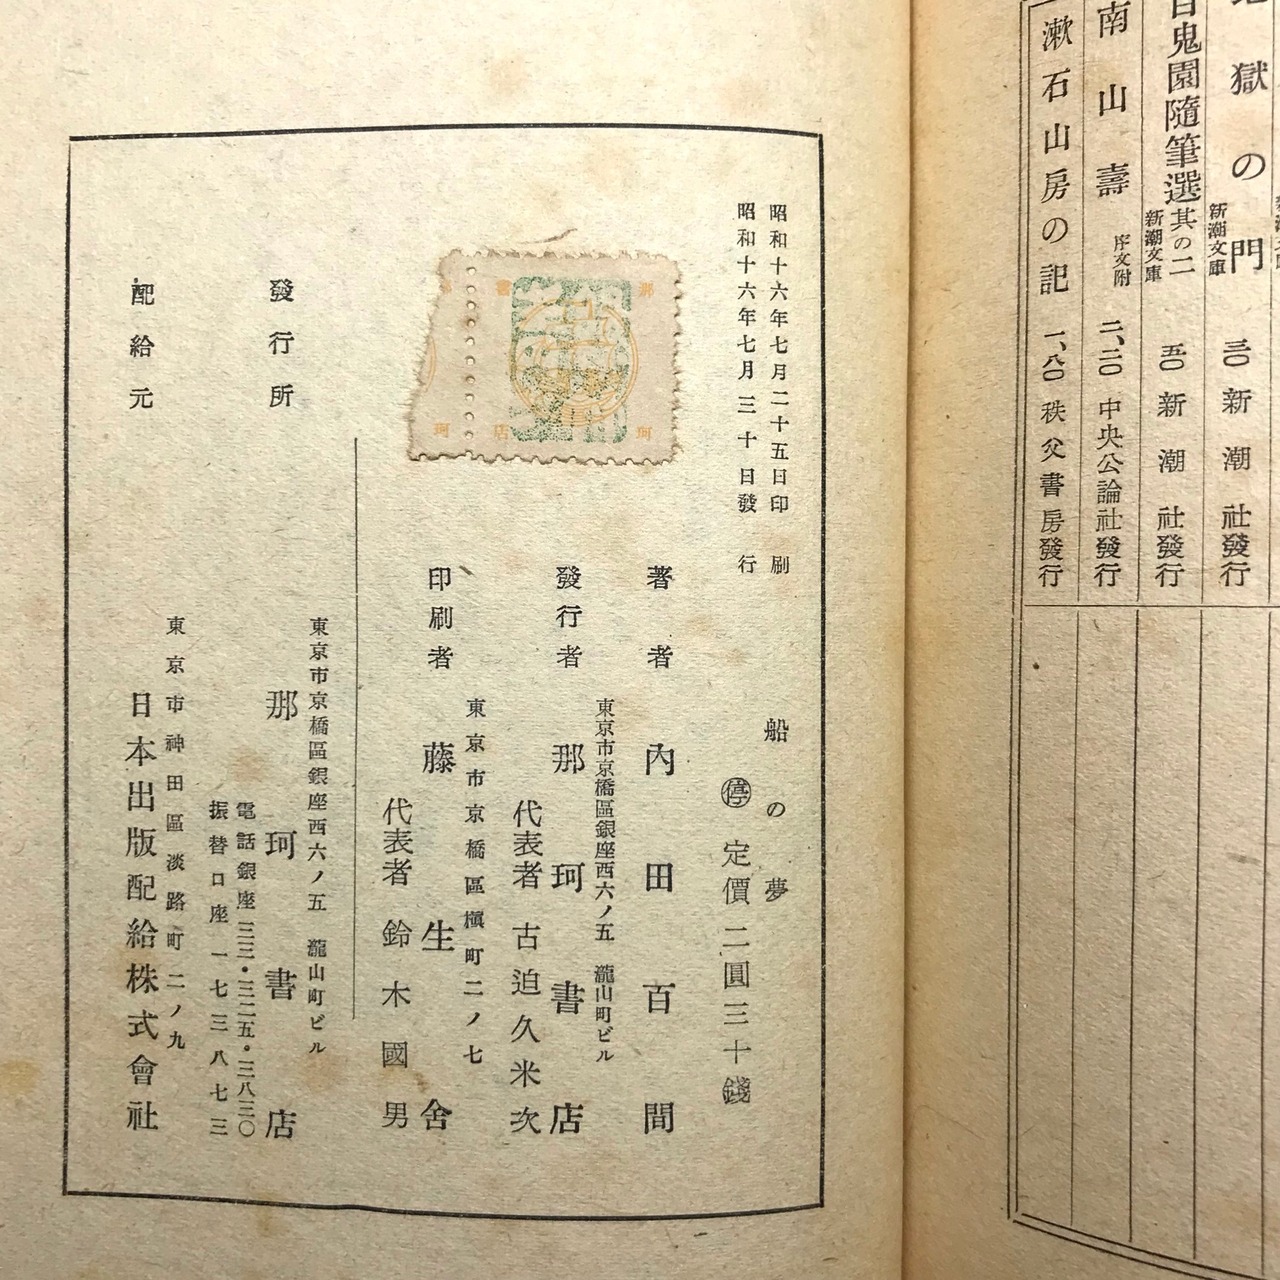 獄の門 新潮文庫 三〇 新潮社發行
百鬼園隨筆選 其の二 新潮文庫 五〇 新潮社發行
南山壽 序文附 二、二〇 中央公論社發行
漱石山房の記 一、八〇 秩父書房發行
昭和十六年七月二十五日印刷
昭和十六年七月三十日發行
船の夢
停 定價 二圓三十錢
著者 內田百間
東京市京橋區銀座西六ノ五 瀧山町ビル
發行者 那珂書店
代表者 古迫久米次
東京市京橋區槇町二ノ七
印刷者 藤生舍
代表者 鈴木國男
東京市京橋區銀座西六ノ五 瀧山町ビル
發行所 那珂書店
電話銀座三三・三二五・三八三〇
振替口座一七三八七三
東京市神田區淡路町二ノ九
配給元 日本出版配給株式會社
那 書
珂 店 珂